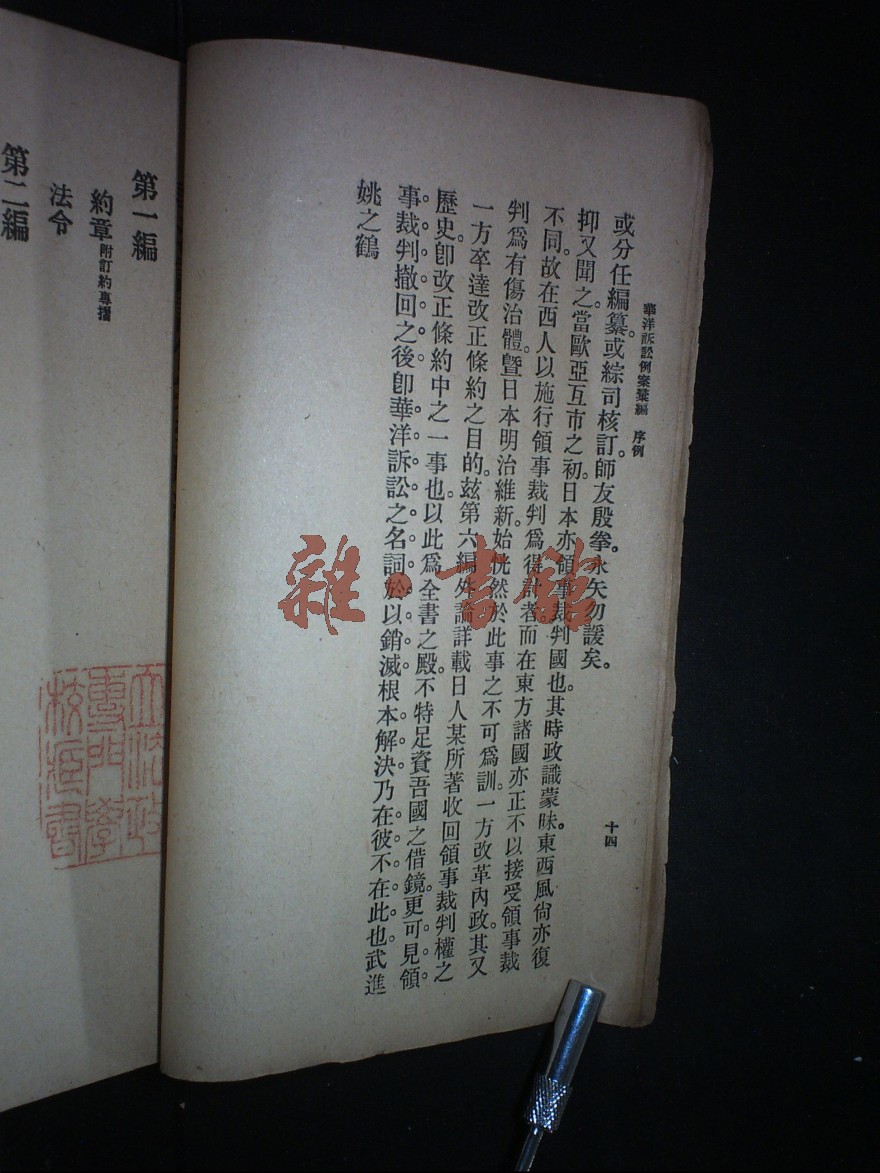 華洋訴訟例案彙編 序例
十四
或分任編纂。或綜司核訂。師友殷拳。永矢勿諼矣。
抑又聞之。當歐亞互市之初。日本亦領事裁判國也。其時政識蒙昧。東西風尙亦復
不同。故在西人以施行領事裁判爲得計者。而在東方諸國亦正不以接受領事裁
判爲有傷治體。曁日本明治維新。始恍然於此事之不可爲訓。一方改革內政。其又
一方卒達改正條約之目的。玆第六編外論詳載日人某所著收回領事裁判權之
歷史。卽改正條約中之一事也。以此爲全書之殿。不特足資吾國之借鏡。更可見領
事裁判撤回之後。卽華洋訴訟之名詞於以銷滅。根本解決乃在彼不在此也。武進
姚之鶴
第一編
約章附訂約專攟
法令
第二編
雜·書館